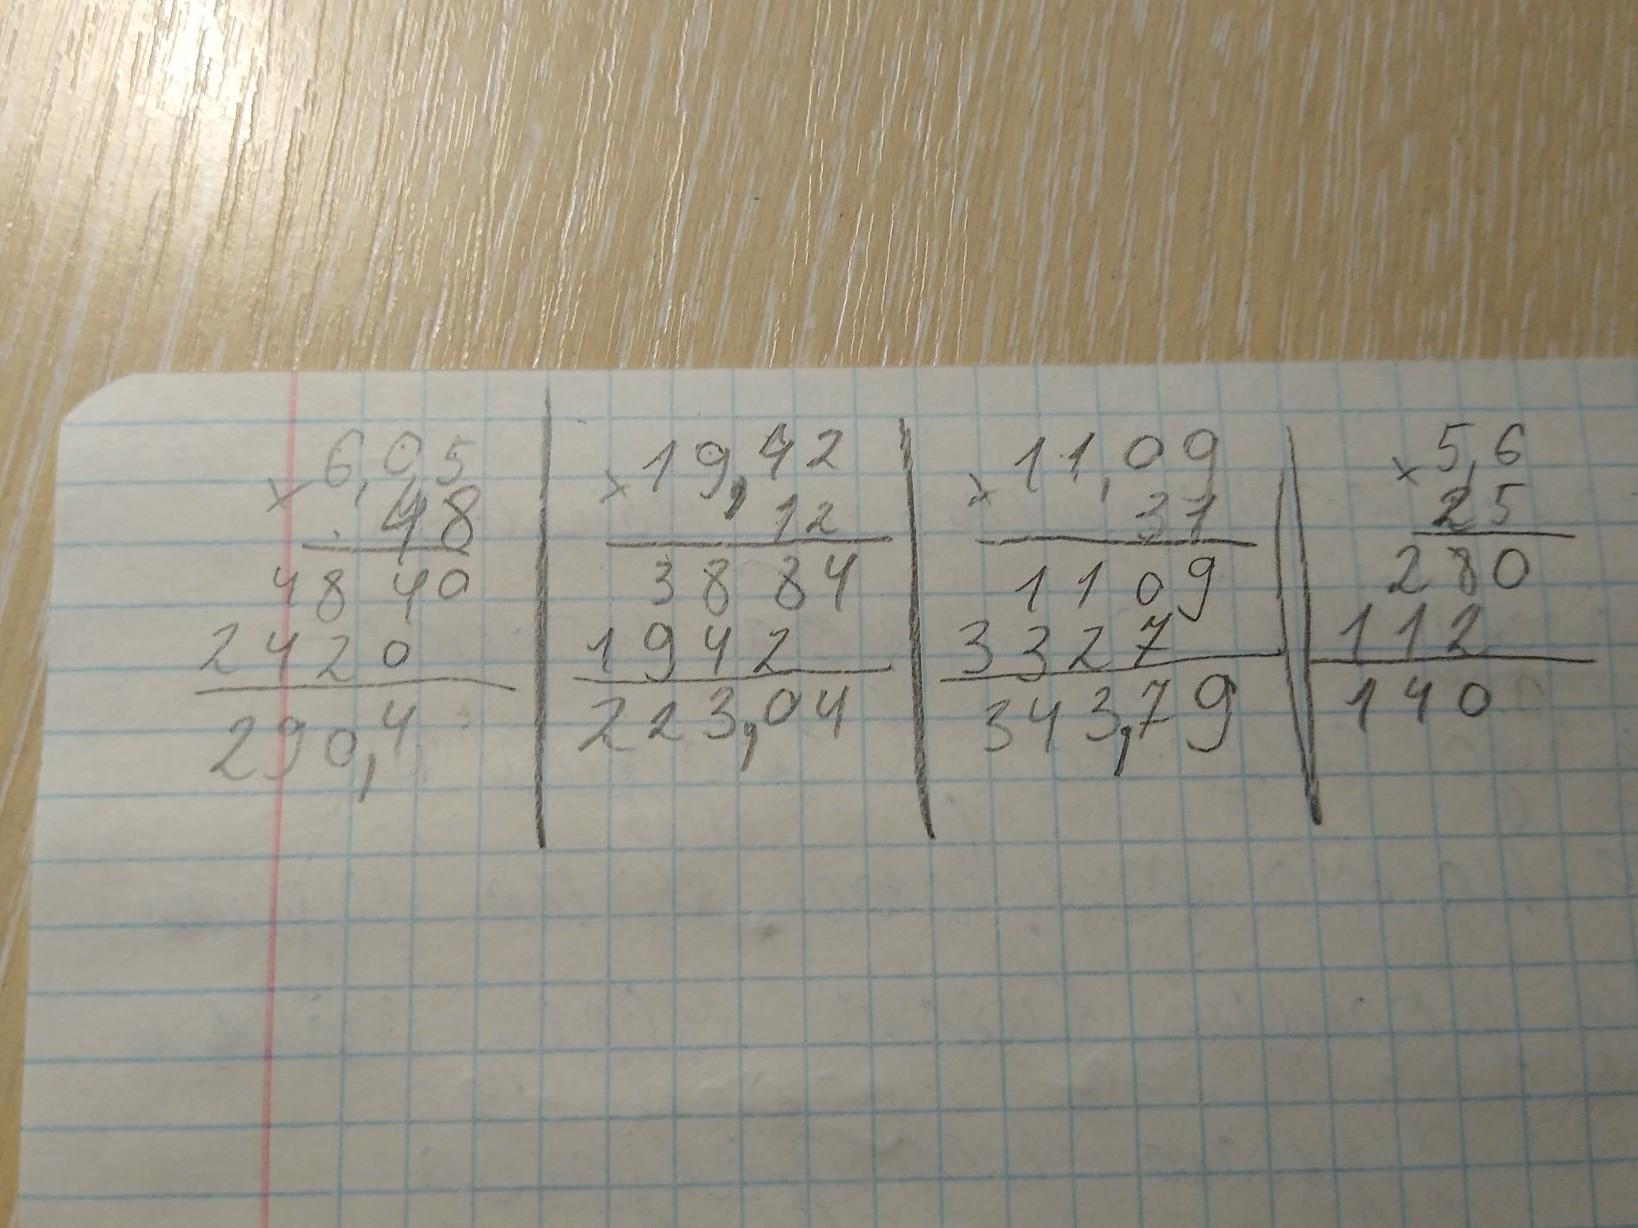 × 6,05
48
4840
2420
290,4
× 19,42
12
3884
1942
223,04
× 11,09
31
1109
3327
343,79
× 5,6
25
280
112
140